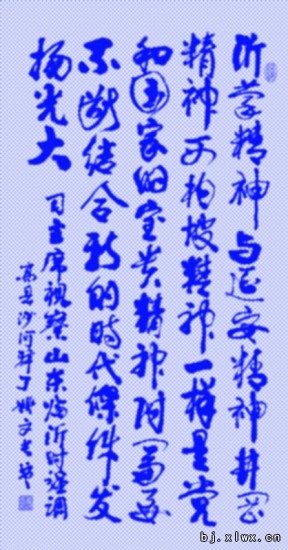 沂蒙精神与延安精神井冈
精神西柏坡精神一样是党
和国家的宝贵精神财富要
不断结合新的時代條件发
扬光大
习主席視察山东临沂时强调
高县沙河驿
bj.xlwx.cn